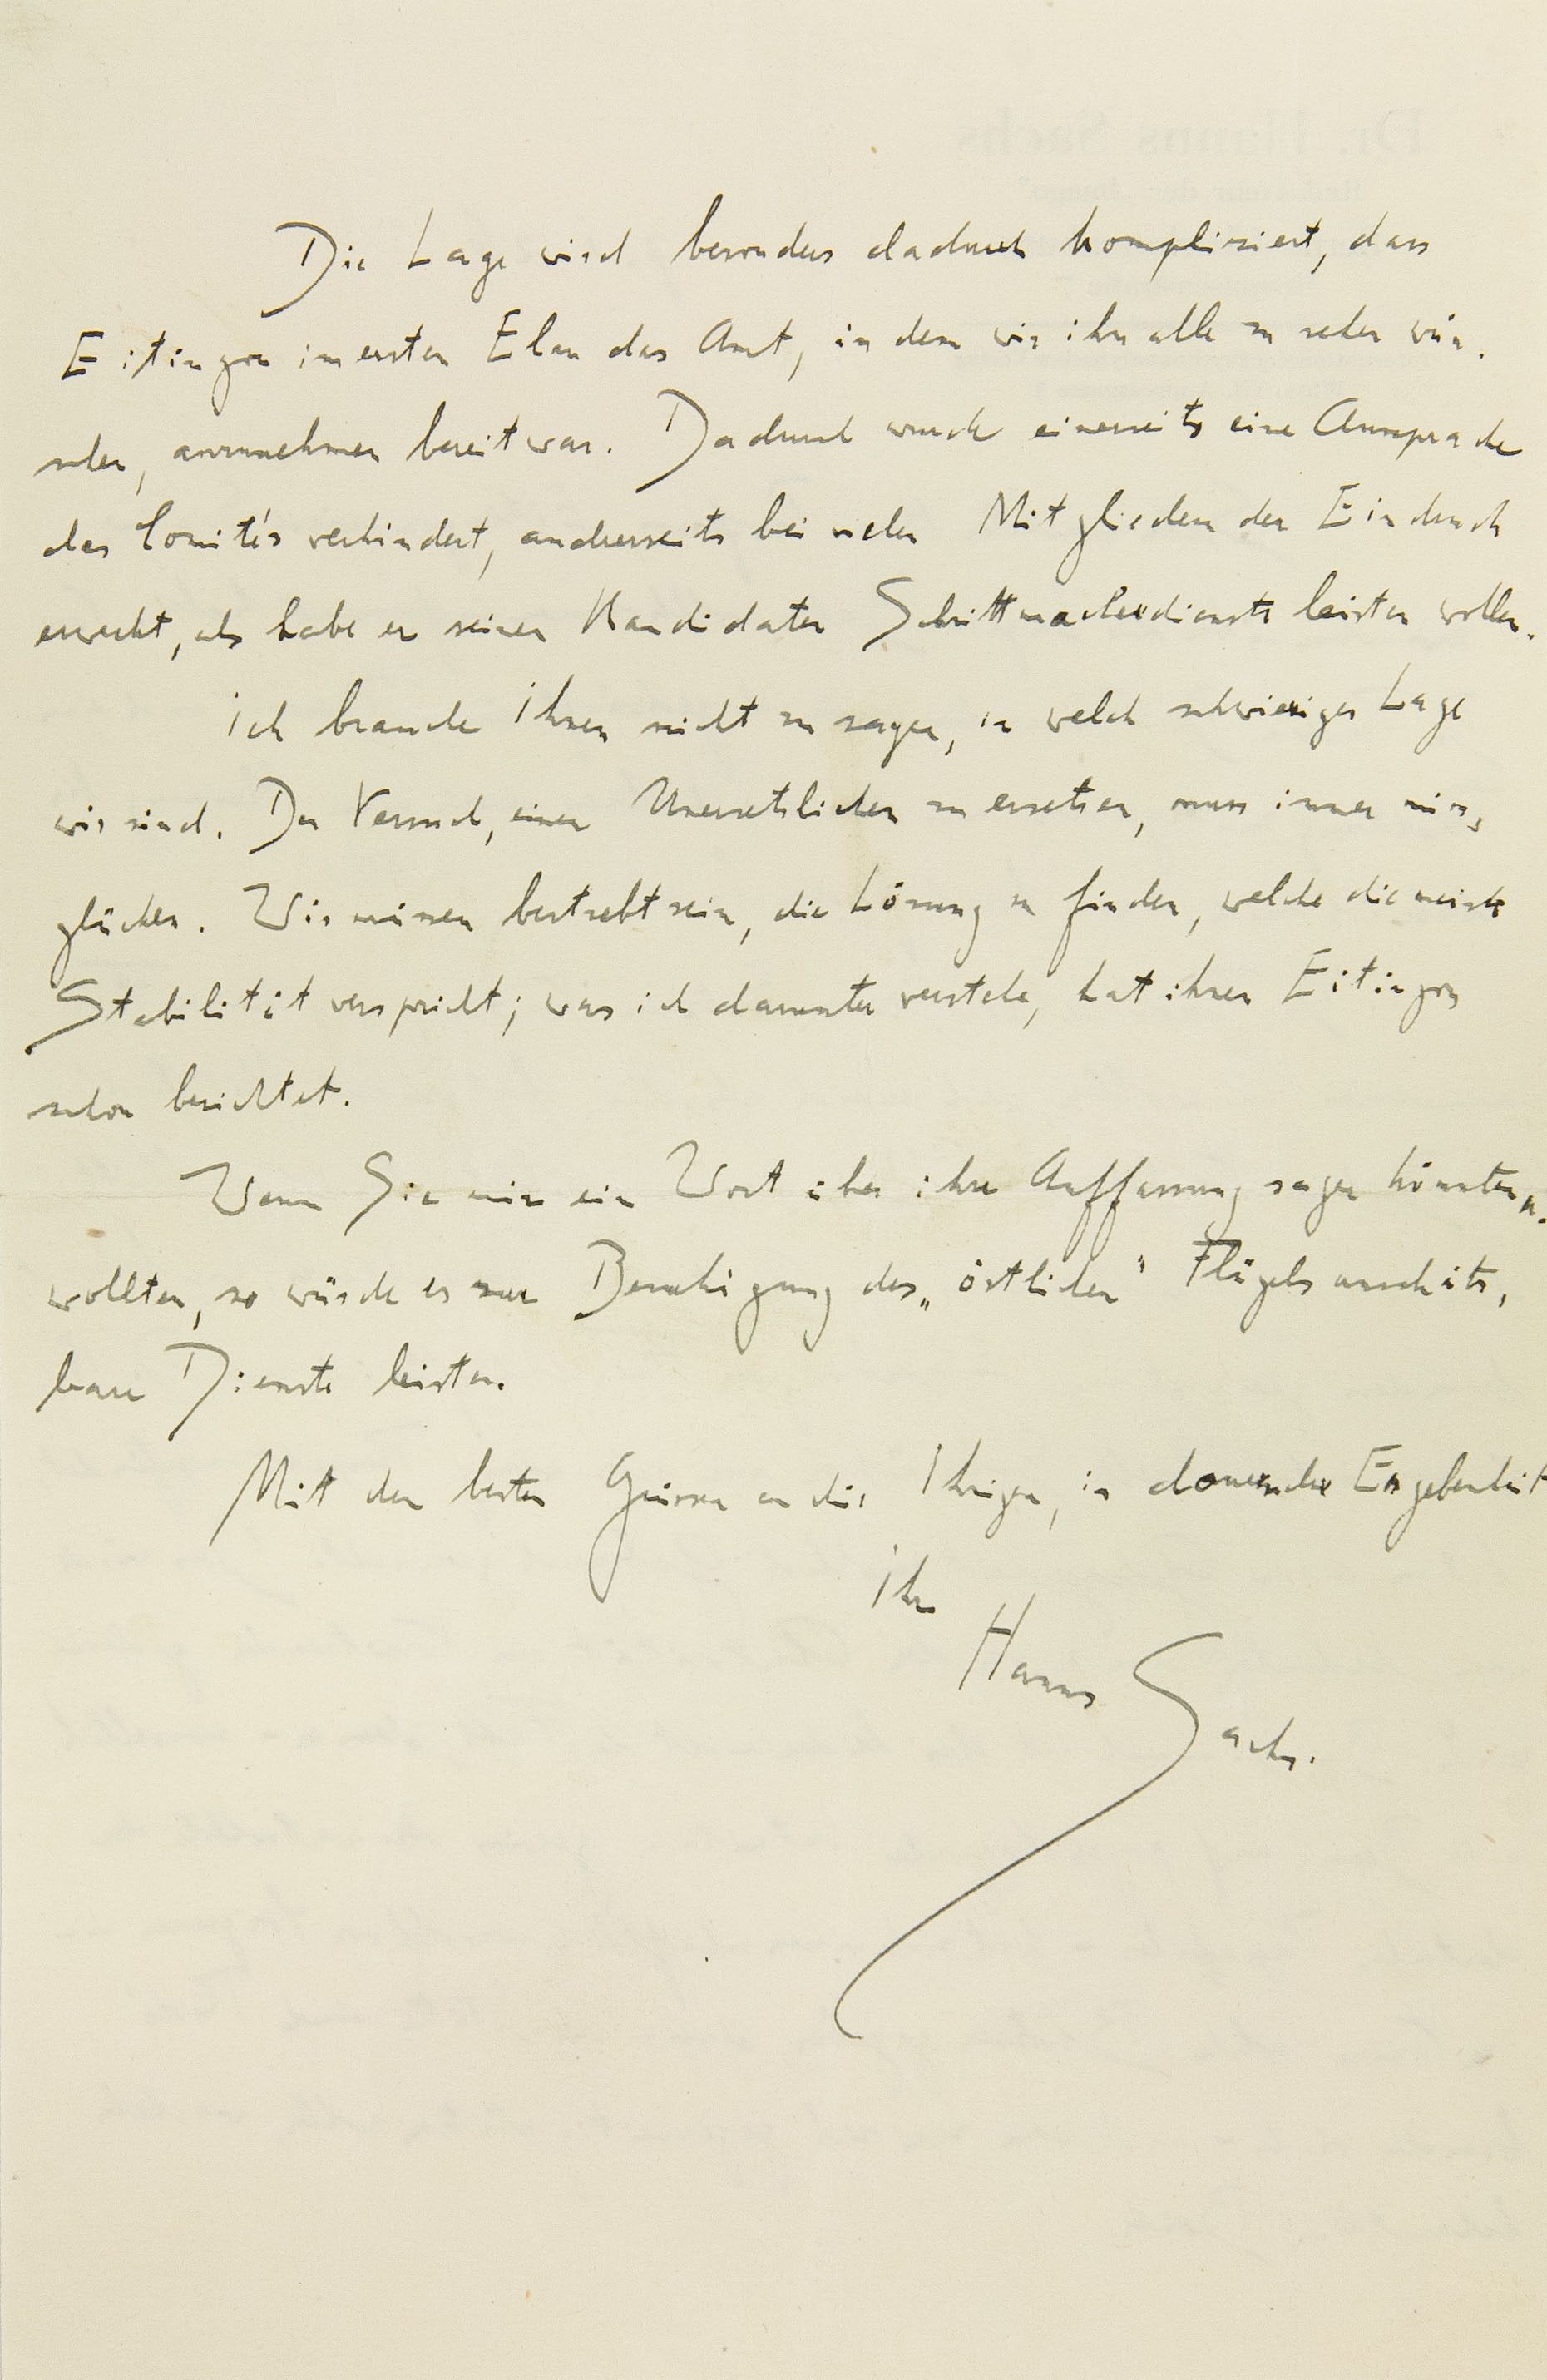 Die Lage wird besonders dadurch kompliziert, dass
Eitingon im ersten Elan das Amt, in dem wir ihn alle zu sehen wün-
schen, anzunehmen bereit war. Dadurch wurde einerseits eine Aussprache
des Comités verhindert, anderseits bei vielen Mitgliedern der Eindruck
erweckt, als habe er seinen Kandidaten Schrittmacherdienste leisten wollen.
Ich brauche Ihnen nicht zu sagen, in welch schwieriger Lage
wir sind. Der Versuch, einen Unersetzlichen zu ersetzen, muss immer miss-
glücken. Wir müssen bestrebt sein, die Lösung zu finden, welche die meiste
Stabilität verspricht; was ich darunter verstehe, hat ihnen Eitingon
schon berichtet.
Wenn Sie mir ein Wort über ihre Auffassung sagen könnten u.
wollten, so würde es zur Beruhigung des „östlichen" Flügels unschätz-
bare Dienste leisten.
Mit den besten Grüssen an die Ihrigen, in dauernder Ergebenheit
Ihr
Hanns Sachs.